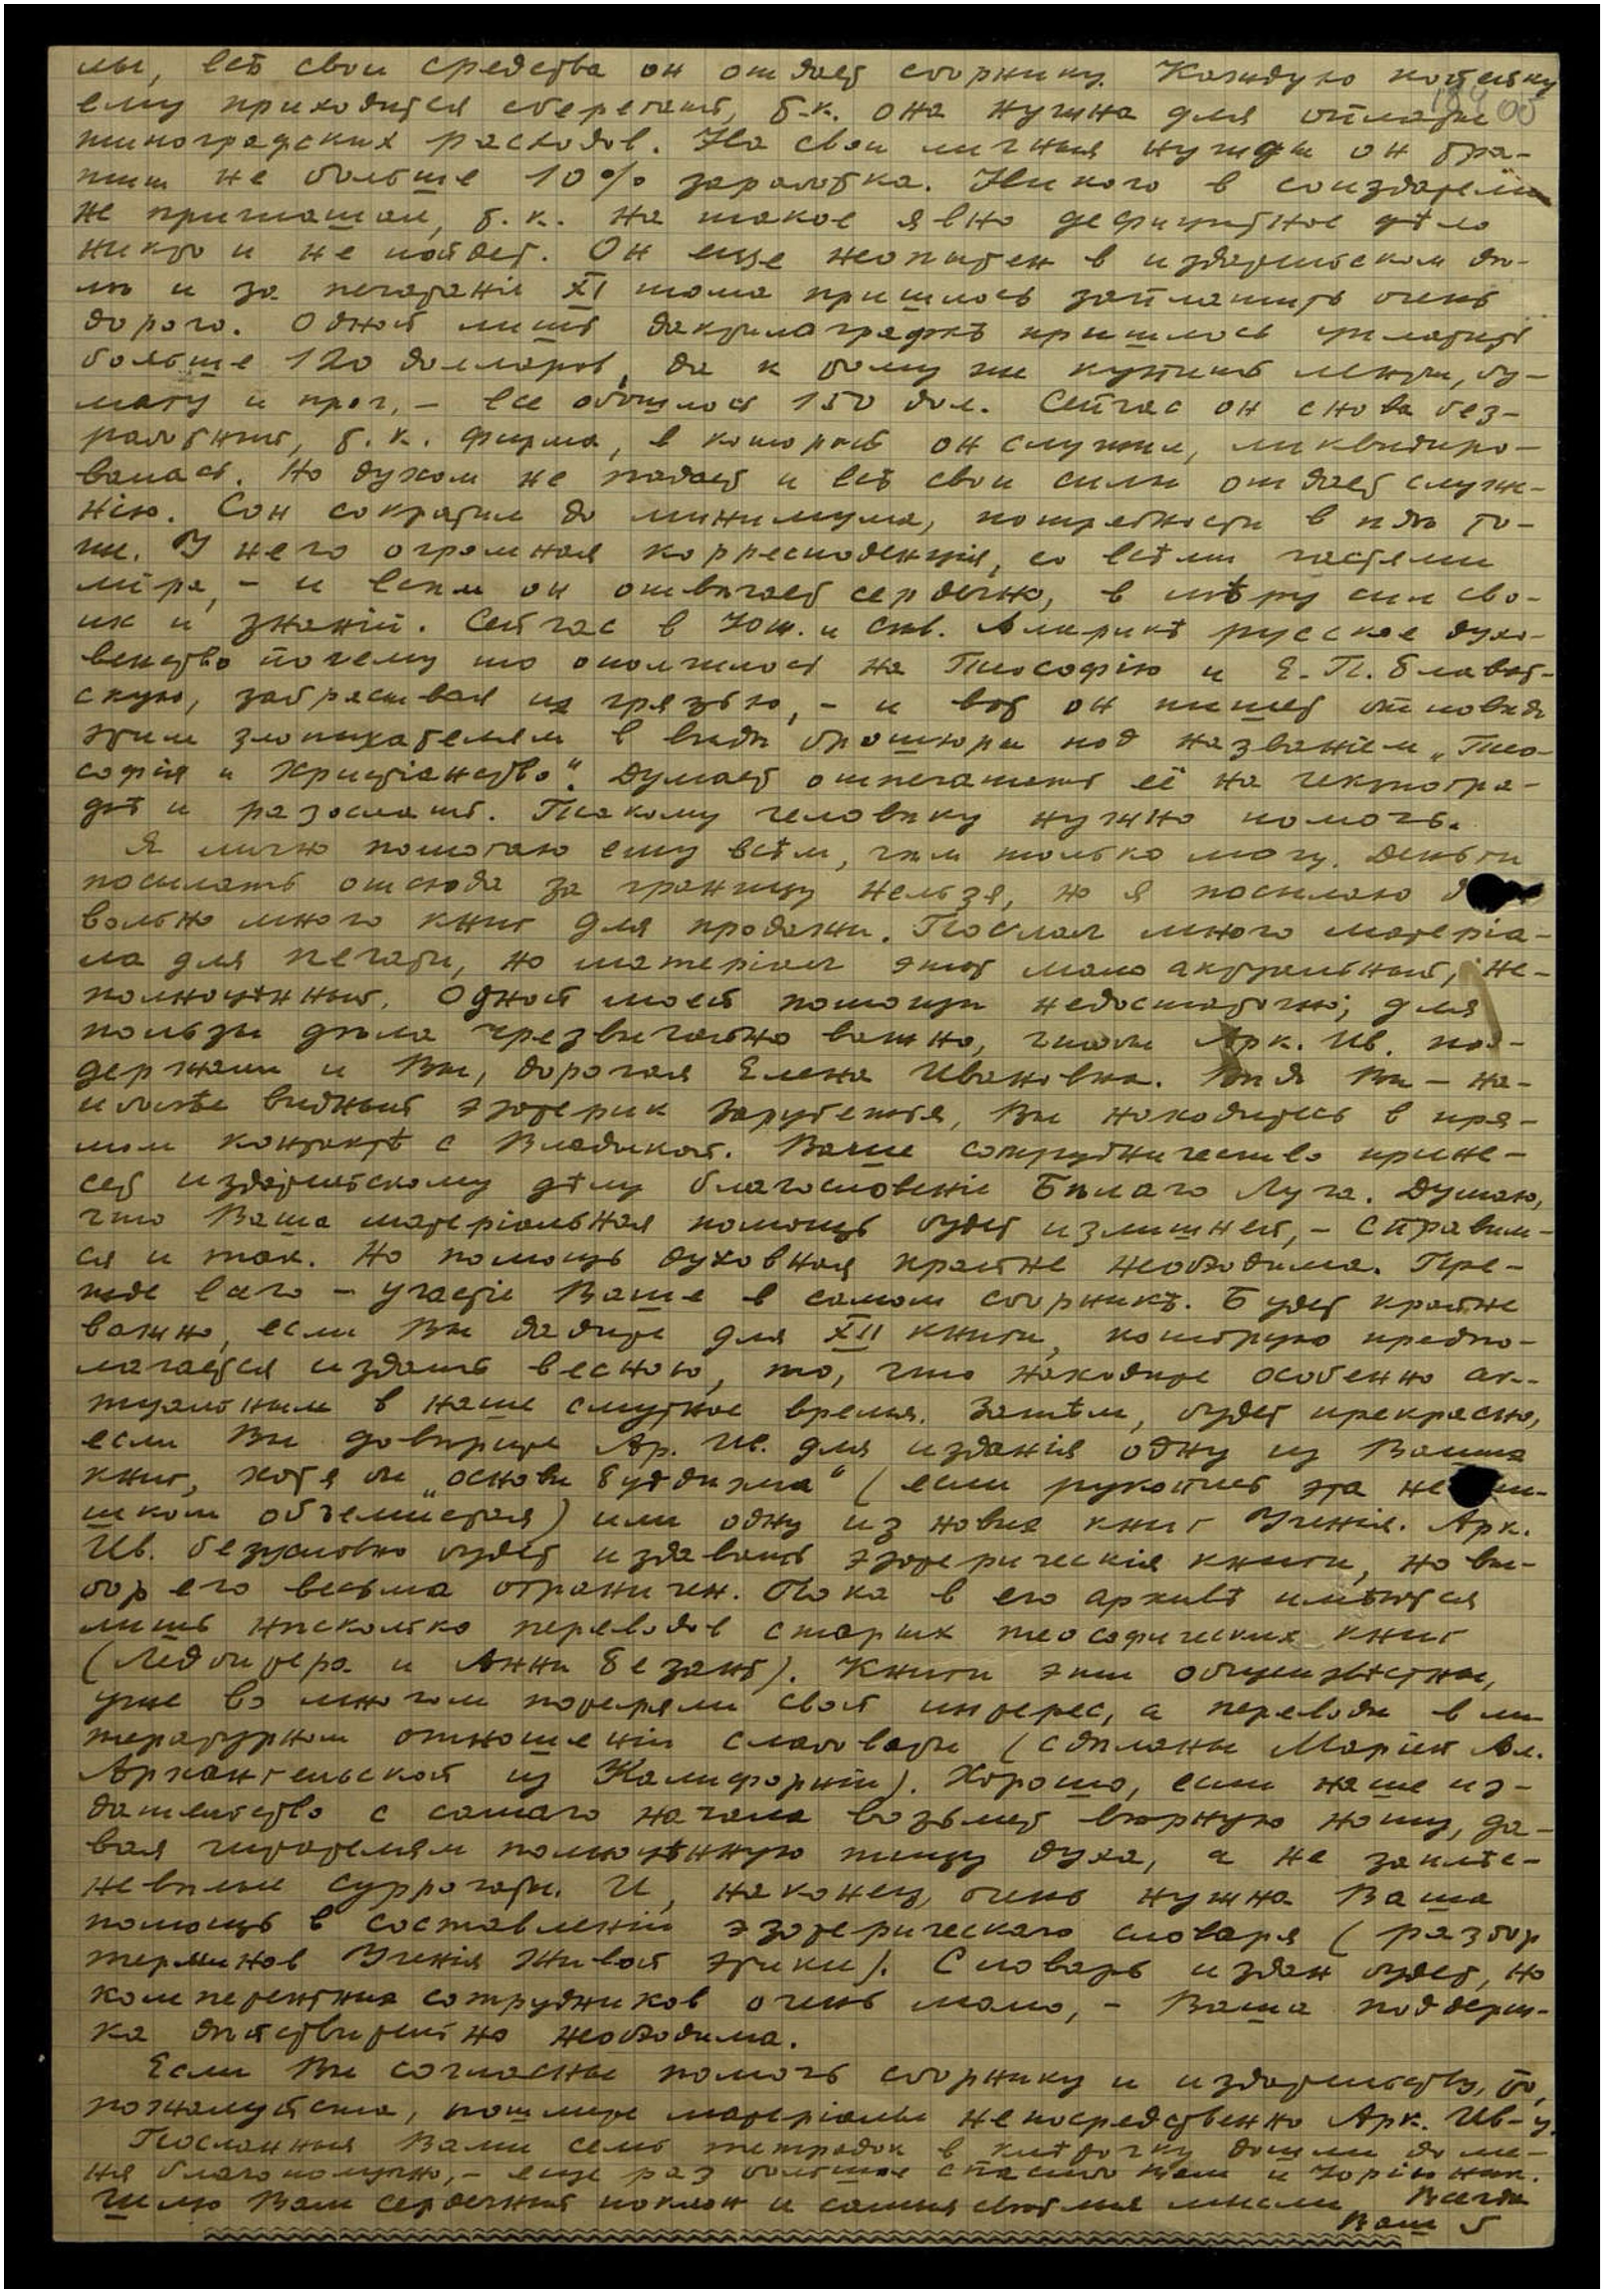 мы, всѣ свои средства он отдает сборнику. Каждую копѣйку
ему приходится сберегать, т.к. она нужна для оплаты
типографских расходов. На свои личныя нужды он тра-
тит не больше 10% заработка. Никого в соиздатели
не приглашал, т.к. на такое явно дефицитное дѣло
никто и не пойдет. Он еще неопытен в издательском дѣ-
лѣ и за печатаніе XI тома пришлось заплатить очень
дорого. Одной лишь дактилографкѣ пришлось уплатить
больше 120 долларов, да к тому же купить ленты, бу-
магу и проч, – все обошлось 150 дол. Сейчас он снова без-
работный, т.к. фирма, в которой он служил, ликвидиро-
валась. Но духом не падает и всѣ свои силы отдает служе-
нію. Сон сократил до минимума, потребности в пдѣ то-
же. У него огромная корреспонденція, со всѣми частями
міра, – и всѣм он отвѣчает сердечно, в мѣру сил сво-
их и знаній. Сейчас в Юж. и Сѣв. Америкѣ русское духо-
венство почему то ополчилось на Теософію и Е.П. Блават-
скую, забрасывая их грязью, – и вот он пишет отповѣдь
этим злопыхателям в видѣ брошюры под названіем „Тео-
софія и Христіанство“. Думает отпечатать её на гектогра-
фѣ и разослать. Такому человѣку нужно помочь.
Я лично помогаю ему всѣм, чѣм только могу. Деньги
посылать отсюда за границу нельзя, но я посылаю
вольно много книг для продажи. Послал много матеріа-
ла для печати, но матеріал этот мало актуальный, не-
полноцѣнный. Одной моей помощи недостаточно; для
пользы дѣла чрезвычайно важно, чтобы Арк. Ив. под-
держали и Вы, дорогая Елена Ивановна. Вѣдь Вы – на-
иболѣе видный эзотерик Зарубежья, Вы находитесь в пря-
мом контактѣ с Владыкой. Ваше сотрудничество прине-
сет издательскому дѣлу благословеніе Бѣлаго Луча. Думаю,
что Ваша матеріальная помощь будет излишней, – справим-
ся и так. Но помощь духовная крайне необходима. Пре-
жде всего – участіе Ваше в самом сборникѣ. Будет крайне
важно, если Вы дадите для XII книги, которую предпо-
лагается издать весною, то, что находите особенно ак-
туальным в наше смутное время. Затѣм, будет прекрасно,
если Вы довѣрите Ар. Ив. для изданія одну из Ваших
книг, хотя бы „основы Буддизма“ (если рукопись эта не
шком объемистая) или одну из новых книг Ученія. Арк.
Ив. безусловно будет издавать эзотерическія книги, но вы-
бор его весьма ограничен. Пока в его архивѣ имѣются
лишь нѣсколько переводов старых теософических книг
(Ледбитера и Анни Безант). Книги эти общеизвѣстны,
уже во многом потеряли свой интерес, а переводы в ли-
тературном отношеніи слабоваты (сдѣланы Маріей Ал.
Архангельской из Калифорніи). Хорошо, если наше из-
дательство с самаго начала возьмет вѣрную ноту, да-
вая читателям полноцѣнную пищу духа, а не заплѣс-
невѣлые суррогаты. И, наконец, очень нужна Ваша
помощь в составленіи эзотерическаго словаря (разбор
терминов Ученія Живой Этики). Словарь издан будет, но
компетентных сотрудников очень мало, – Ваша поддерж-
ка дѣйствительно необходима.
Если Вы согласны помочь сборнику и издательству, то,
пожалуйста, пошлите матеріалы непосредственно Арк. Ив-у.
Посланныя Вами семь тетрадок в клѣточку дошли до ме-
ня благополучно, – еще раз большое спасибо Вам и Юрію Ник.
Шлю Вам сердечный поклон и самыя свѣтлыя мысли. Всегда
Ваш